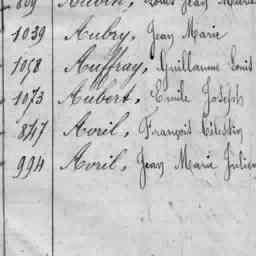 809 Auvin, Louis Jean Marie
1039 Aubry, Jean Marie
1058 Auffray, Guillaume Louis
1073 Aubert, Emile Joseph
847 Avril, François Célestin
994 Avril, Jean Marie Julien